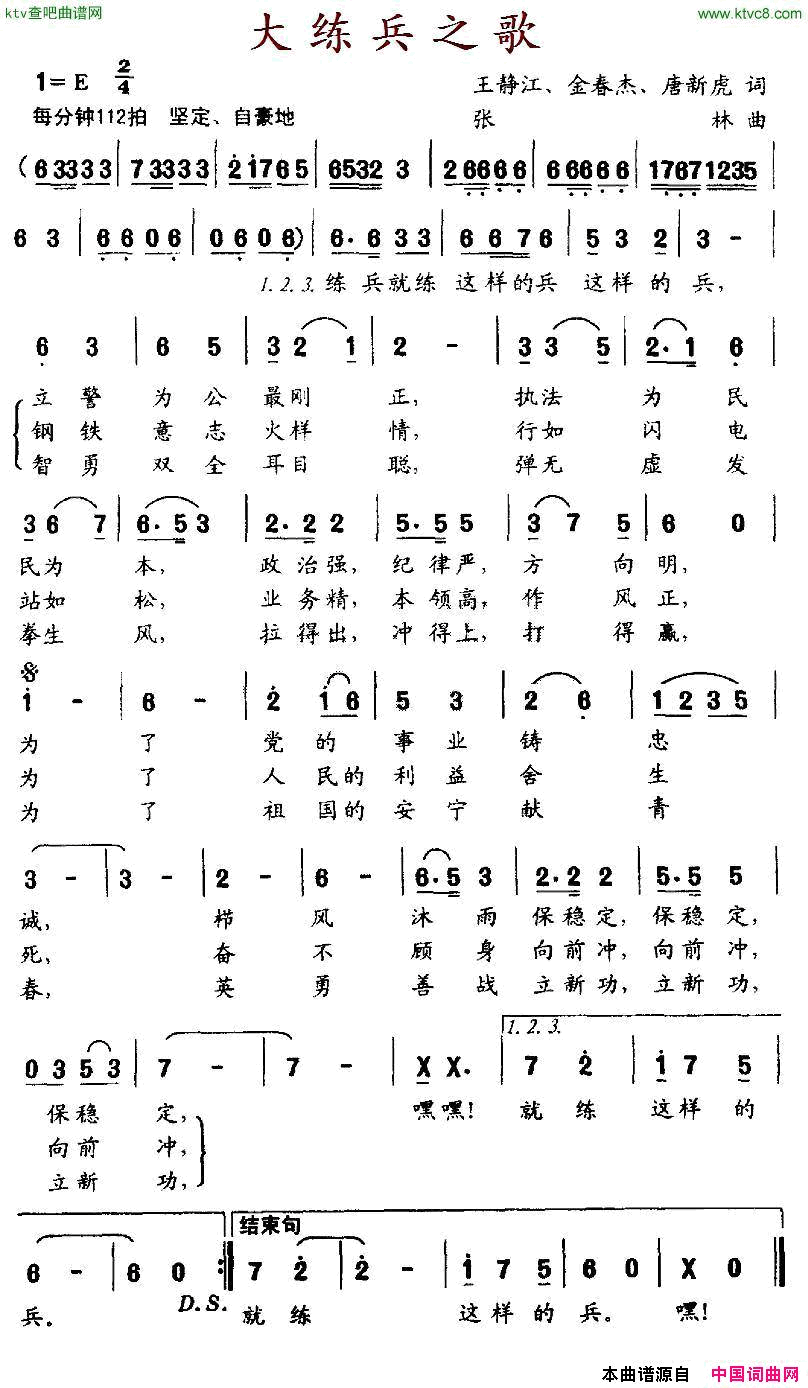 ktv查吧曲谱网
www.ktvc8.com
大练兵之歌
1=E 2/4
王静江、金春杰、唐新虎 词
每分钟112拍 坚定、自豪地
张 林 曲
(6 3333 | 7 3333 | 2 1765 | 6532 3 | 2 6666 | 6 6666 | 1767 1235 |
6 3 | 6 6 0 6 | 0 6 0 6) | 6· 6 3 3 | 6 6 7 6 | 5 3 2 | 3 - |
1.2.3.练兵就练 这样的兵 这样的兵,
6 3 | 6 5 | 3 2 1 | 2 - | 3 3 5 | 2·1 6 |
立警为公最刚正,执法为民
钢铁意志火样情,行如闪电
智勇双全耳目聪,弹无虚发
3 6 7 | 6·5 3 | 2·2 2 | 5·5 5 | 3 7 5 | 6 0 |
民为本,政治强,纪律严,方向明,
站如松,业务精,本领高,作风正,
拳生风,拉得出,冲得上,打得赢,
1 - | 6 - | 2 1 6 | 5 3 | 2 6 | 1 2 3 5 |
为了党的事业铸忠
为了人民的利益舍生
为了祖国的安宁献青
3 - | 3 - | 2 - | 6 - | 6·5 3 | 2·2 2 | 5·5 5 |
诚,栉风沐雨保稳定,保稳定,
死,奋不顾身向前冲,向前冲,
春,英勇善战立新功,立新功,
1.2.3.
0 3 5 3 | 7 - | 7 - | X X· | 7 2 | 1 7 5 |
保稳定,嘿嘿!就练这样的
向前冲,
立新功,
结束句
6 - | 6 0 :‖ 7 2 | 2 - | 1 7 5 | 6 0 | X 0 ‖
兵。 D.S. 就练 这样的兵。嘿!
本曲谱源自 中国词曲网